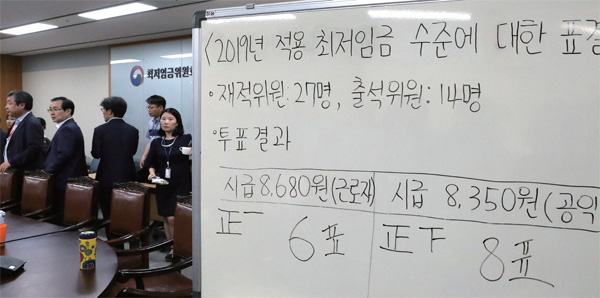 최저임금위원회
<2019년 적용 최저임금 수준에 대한 표결
·재적위원:27명, 출석위원:14명
·투표결과
시급 8,680원(근로자) 시급 8,350원(공익
正一 6표 正下 8표